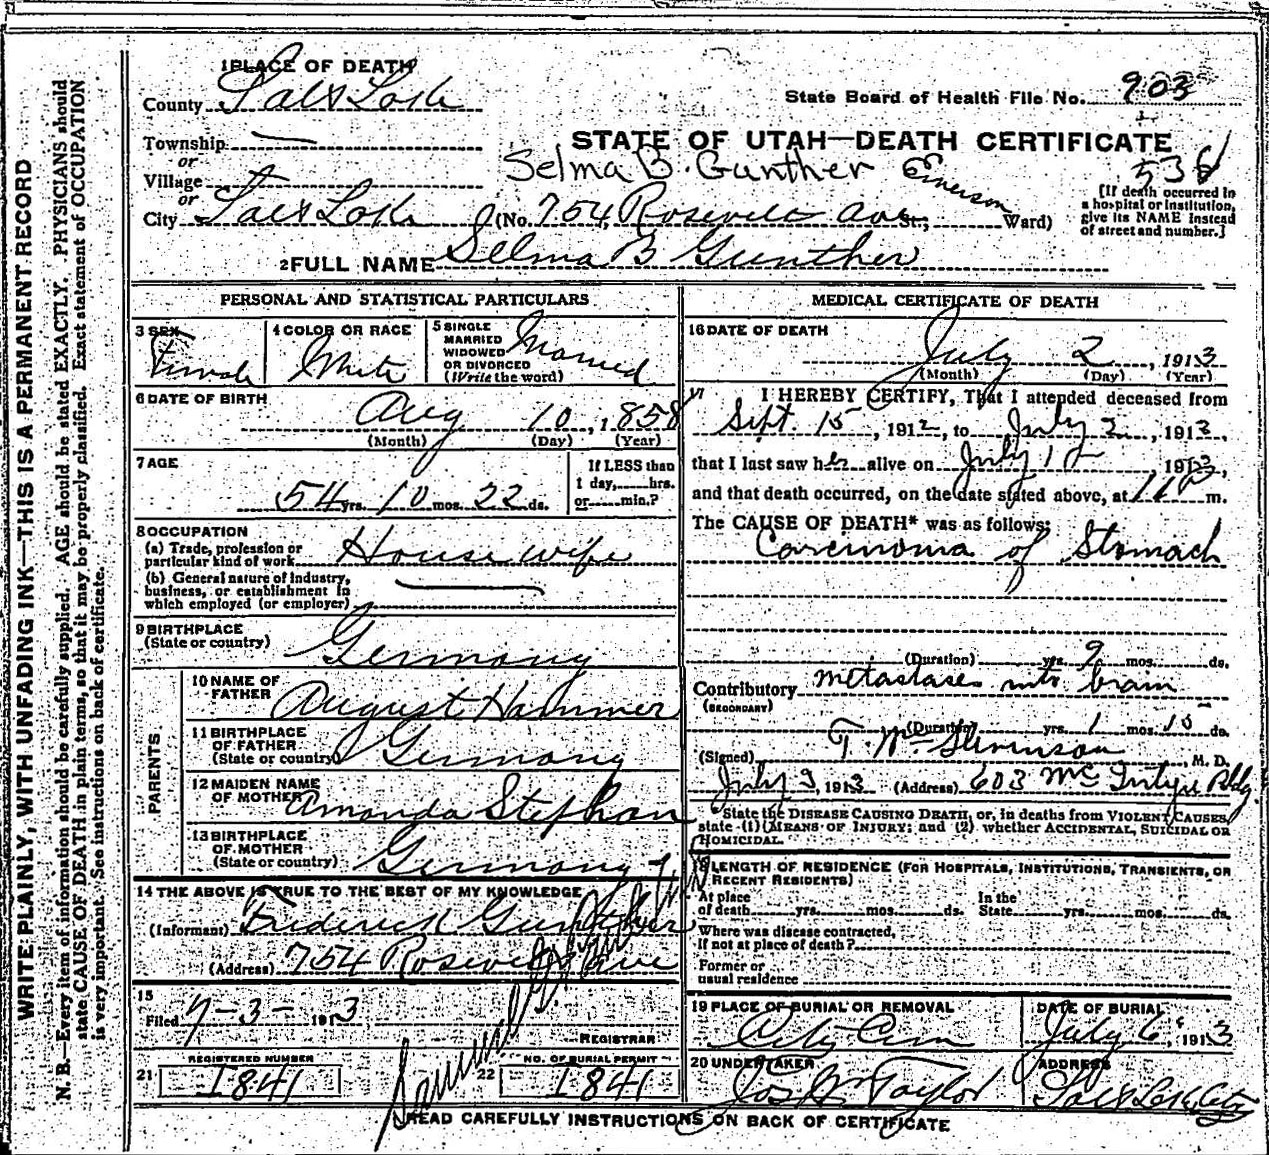 WRITE PLAINLY, WITH UNFADING INK—THIS IS A PERMANENT RECORD
N. B.—Every item of information should be carefully supplied. AGE should be stated EXACTLY. PHYSICIANS should
state CAUSE OF DEATH in plain terms, so that it may be properly classified. Exact statement of OCCUPATION
is very important. See instructions on back of certificate.
1 PLACE OF DEATH
County Salt Lake
State Board of Health File No. 903
Township —
or
Village
or
City Salt Lake
STATE OF UTAH—DEATH CERTIFICATE
Selma B. Gunther Emerson
538
(No. 754, Rosevelt ave St.; Ward)
[If death occurred in
a hospital or institution,
give its NAME instead
of street and number.]
2 FULL NAME Selma B Gunther
PERSONAL AND STATISTICAL PARTICULARS
3 SEX Female
4 COLOR OR RACE White
5 SINGLE
MARRIED
WIDOWED
OR DIVORCED
(Write the word) Married
6 DATE OF BIRTH
Aug 10, 1858
(Month) (Day) (Year)
7 AGE
54 yrs. 10 mos. 22 ds.
If LESS than
1 day, hrs.
or min.?
8 OCCUPATION
(a) Trade, profession or
particular kind of work House wife
(b) General nature of industry,
business, or establishment in
which employed (or employer) —
9 BIRTHPLACE
(State or country) Germany
PARENTS
10 NAME OF
FATHER August Hammer
11 BIRTHPLACE
OF FATHER
(State or country) Germany
12 MAIDEN NAME
OF MOTHER Amanda Stephan
13 BIRTHPLACE
OF MOTHER
(State or country) Germany
14 THE ABOVE IS TRUE TO THE BEST OF MY KNOWLEDGE
(Informant) Frederick Gunther
(Address) 754 Rosevelt ave
15
Filed 7-3- 1913
REGISTRAR
REGISTERED NUMBER
21 1841
NO. OF BURIAL PERMIT
22 1841
MEDICAL CERTIFICATE OF DEATH
16 DATE OF DEATH
July 2, 1913
(Month) (Day) (Year)
17 I HEREBY CERTIFY, That I attended deceased from
Sept. 15, 1912, to July 2, 1913,
that I last saw her alive on July 1, 1913,
and that death occurred, on the date stated above, at 11 P m.
The CAUSE OF DEATH* was as follows:
Carcinoma of Stomach
(Duration) yrs. 9 mos. ds.
Contributory metastases into brain
(SECONDARY)
(Duration) yrs. 1 mos. 10 ds.
(Signed) T. Stevenson, M. D.
July 3, 1913 (Address) 603 McIntyre Bldg
*State the DISEASE CAUSING DEATH, or, in deaths from VIOLENT CAUSES,
state (1) MEANS OF INJURY; and (2) whether ACCIDENTAL, SUICIDAL OR
HOMICIDAL.
LENGTH OF RESIDENCE (FOR HOSPITALS, INSTITUTIONS, TRANSIENTS, OR
RECENT RESIDENTS)
At place
of death yrs. mos. ds.
In the
State yrs. mos. ds.
Where was disease contracted,
If not at place of death?
Former or
usual residence
19 PLACE OF BURIAL OR REMOVAL
City Cem
DATE OF BURIAL
July 6, 1913
20 UNDERTAKER
Jos Wm Taylor
ADDRESS
Salt Lake City
READ CAREFULLY INSTRUCTIONS ON BACK OF CERTIFICATE